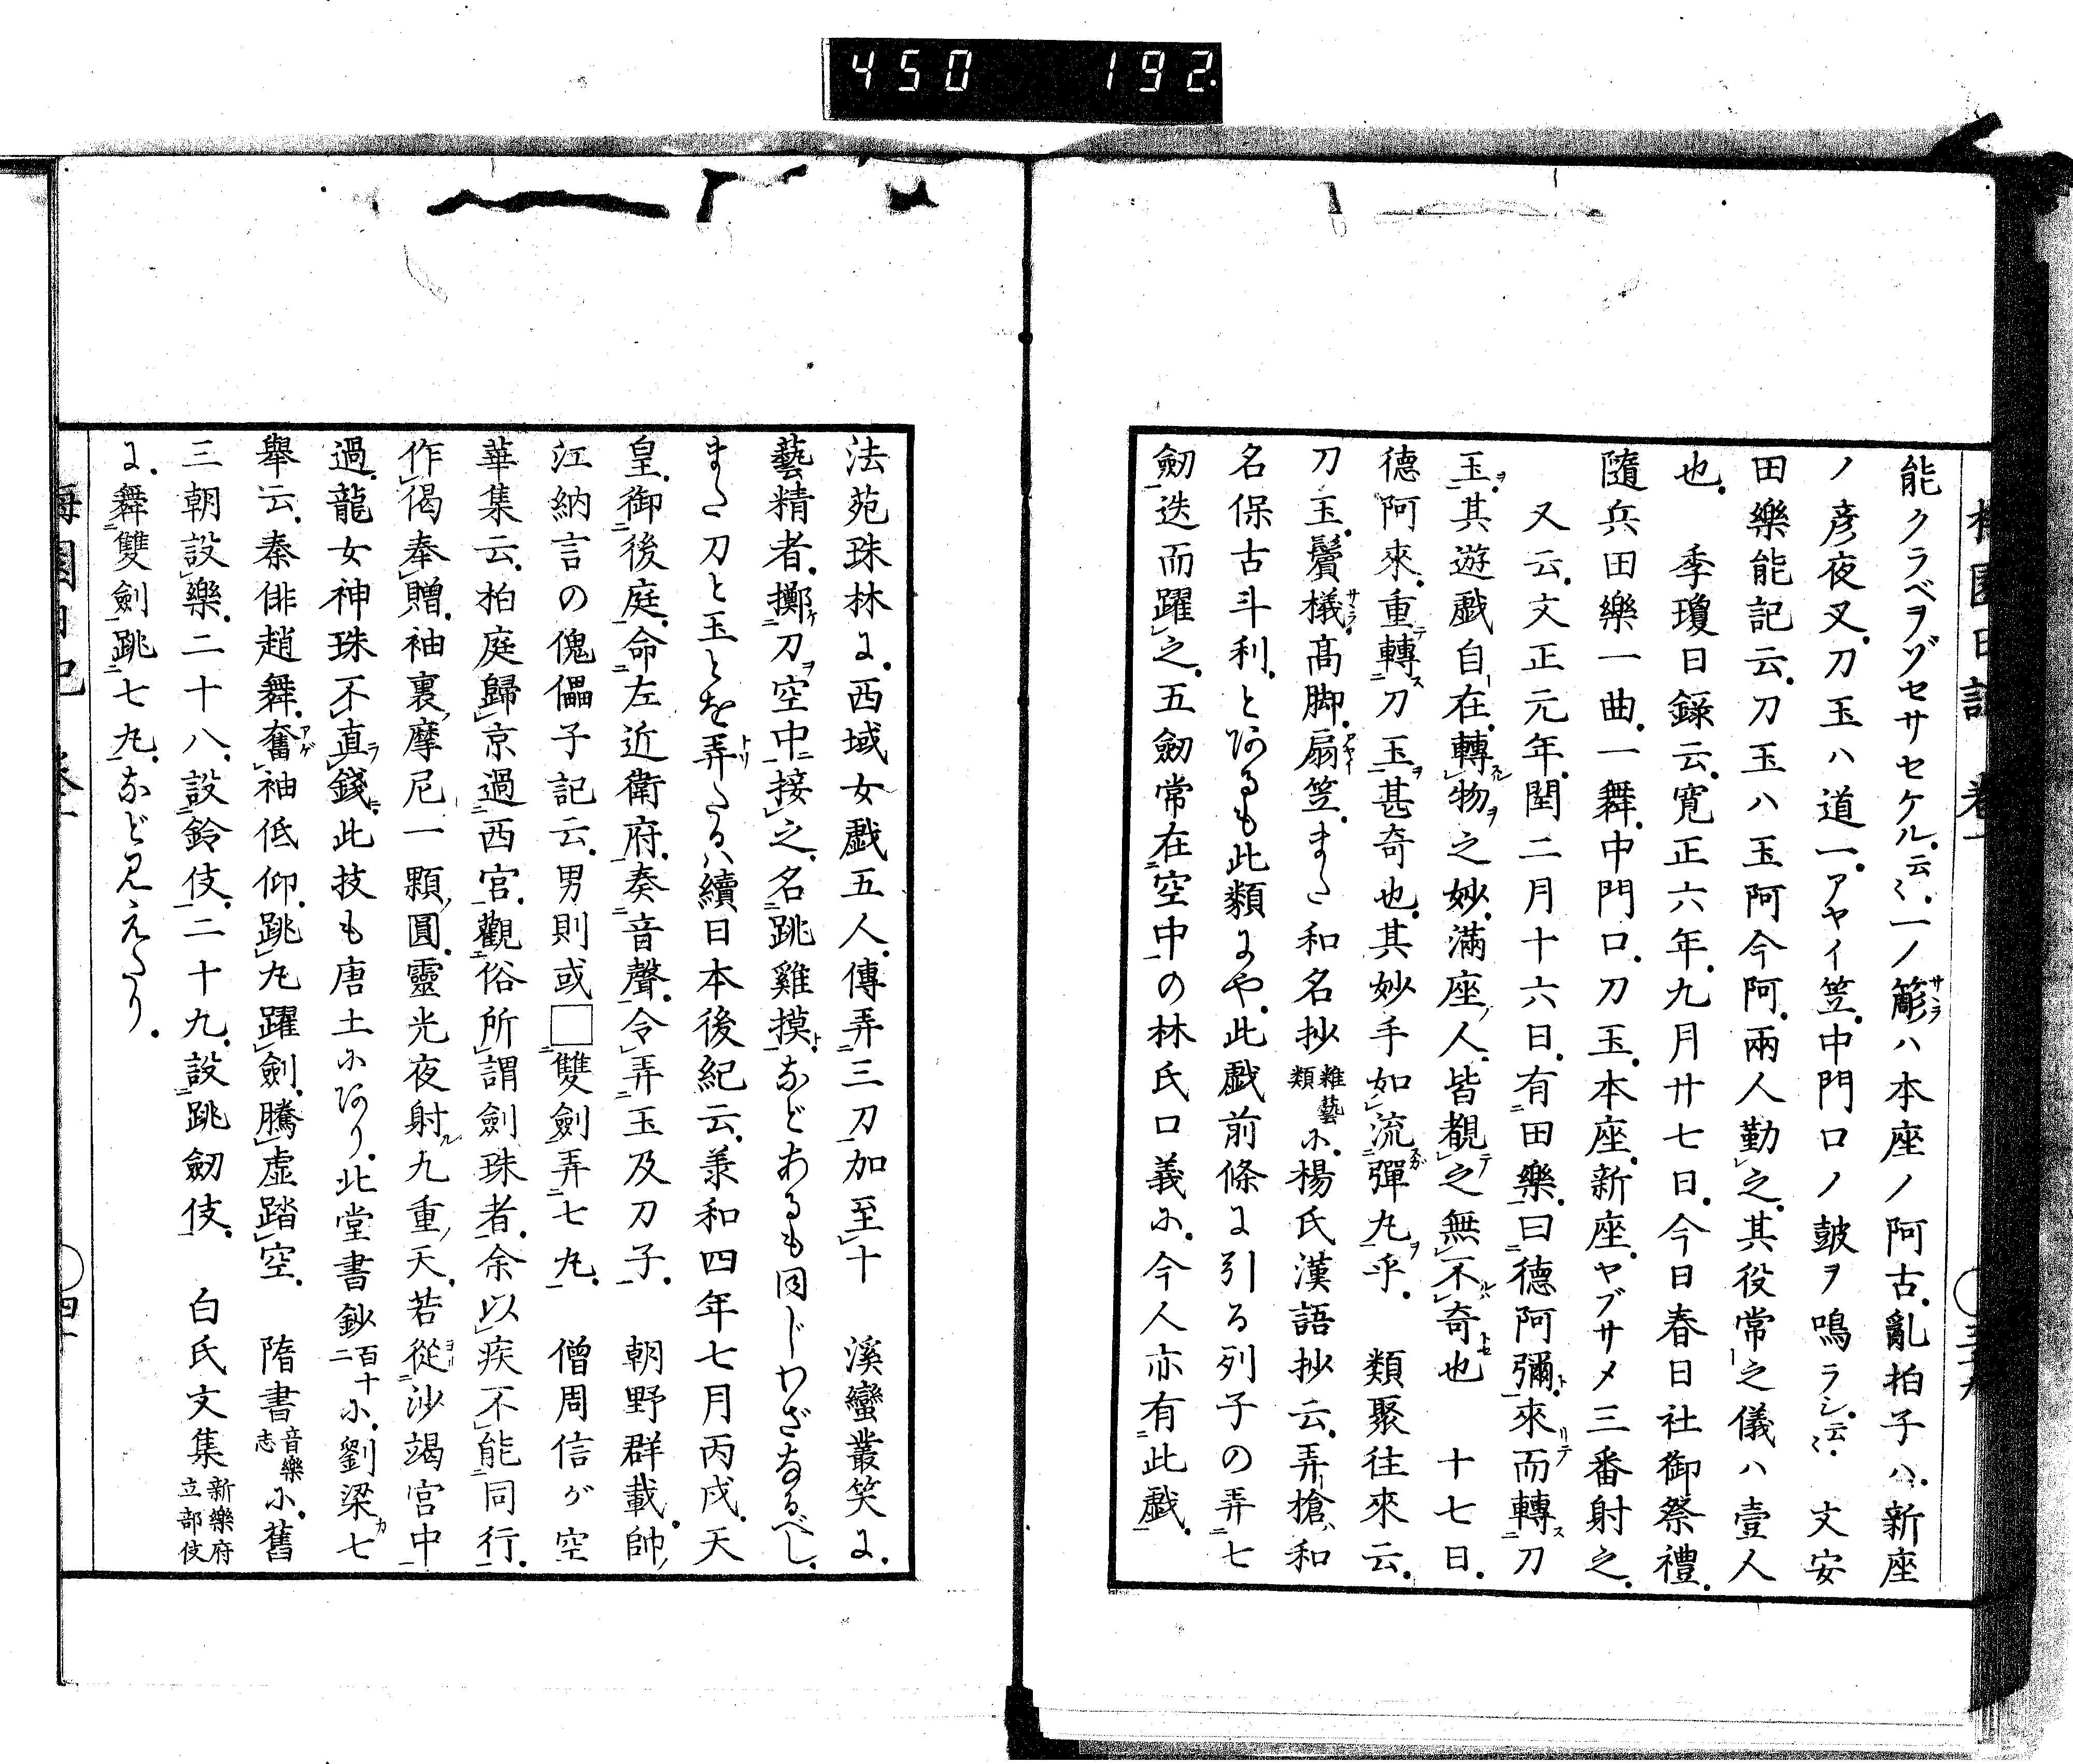 450 192
能クラベヲゾセサセケル。云〻。一ノ簓ハ本座ノ阿古。亂柏子ハ、新座
ノ彦夜叉。刀玉ハ道一。アヤイ笠。中門口ノ鼓ヲ鳴ラシ。云〻。 文安
田樂能記云。刀玉ハ玉阿今阿。兩人勤之。其役常之儀ハ壹人
也。 季瓊日錄云。寛正六年。九月廿七日。今日春日社御祭禮。
隨兵田樂一曲。一舞。中門口。刀玉。本座。新座。ヤブサメ三番射之。
又云。文正元年。閏二月十六日。有田樂。曰德阿彌。來而轉刀
玉。其遊戯自在。轉物之妙。滿座人。皆覩之無不奇也 十七日。
德阿來。重轉刀玉。甚奇也。其妙手如流彈丸乎。 類聚往來云。
刀玉。鬢檥高脚。扇笠。また和名抄雜藝類に。楊氏漢語抄云。弄槍。和
名保古斗利。とあるも此類にや。此戯前條に引る列子の弄七
劒迭而躍之。五劒常在空中の林氏口義に。今人亦有此戯。
法苑珠林に。西域女戯五人。傳弄三刀加至十 溪蠻叢笑に。
藝精者。擲刀空中接之。名跳雞摸。などあるも同じわざなるべし。
また刀と玉とを弄たるハ續日本後紀云。承和四年七月丙戌。天
皇。御後庭。命左近衛府。奏音聲。令弄玉及刀子。 朝野群載。帥
江納言の傀儡子記云。男則或□雙劍弄七丸。 僧周信が空
華集云。柏庭歸京過西宮。觀俗所謂劍珠者。余以疾不能同行。
作偈奉贈。袖裏摩尼一顆圓。靈光夜射九重天。若從沙竭宮中
過。龍女神珠不直錢。此技も唐土にあり。北堂書鈔百十二に。劉梁七
舉云。秦俳趙舞。奮袖低仰。跳丸躍劍。騰虛踏空。 隋書音樂志に。舊
三朝設樂。二十八。設鈴伎。二十九。設跳劒伎。 白氏文集新樂府立部伎
に。舞雙劍跳七丸。など見えたり。